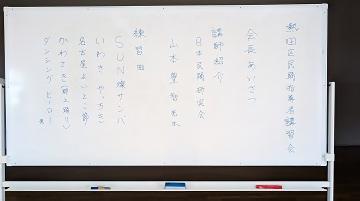 熱田区民踊指導者講習会
会長あいさつ
講師紹介
日本民踊研究会
山本 豊 智先生
練習曲
SUN燦サンバ
いわき やっちき
名古屋ばやし
かわさき(郡上踊り)
ダンシング ヒーロー